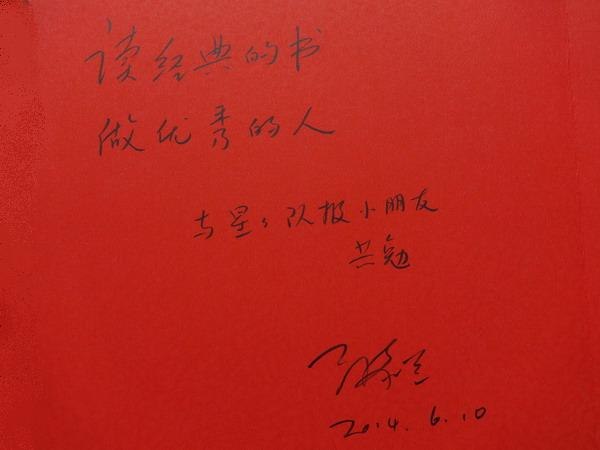 读经典的书
做优秀的人
与星星队报小朋友
共勉
2014.6.10